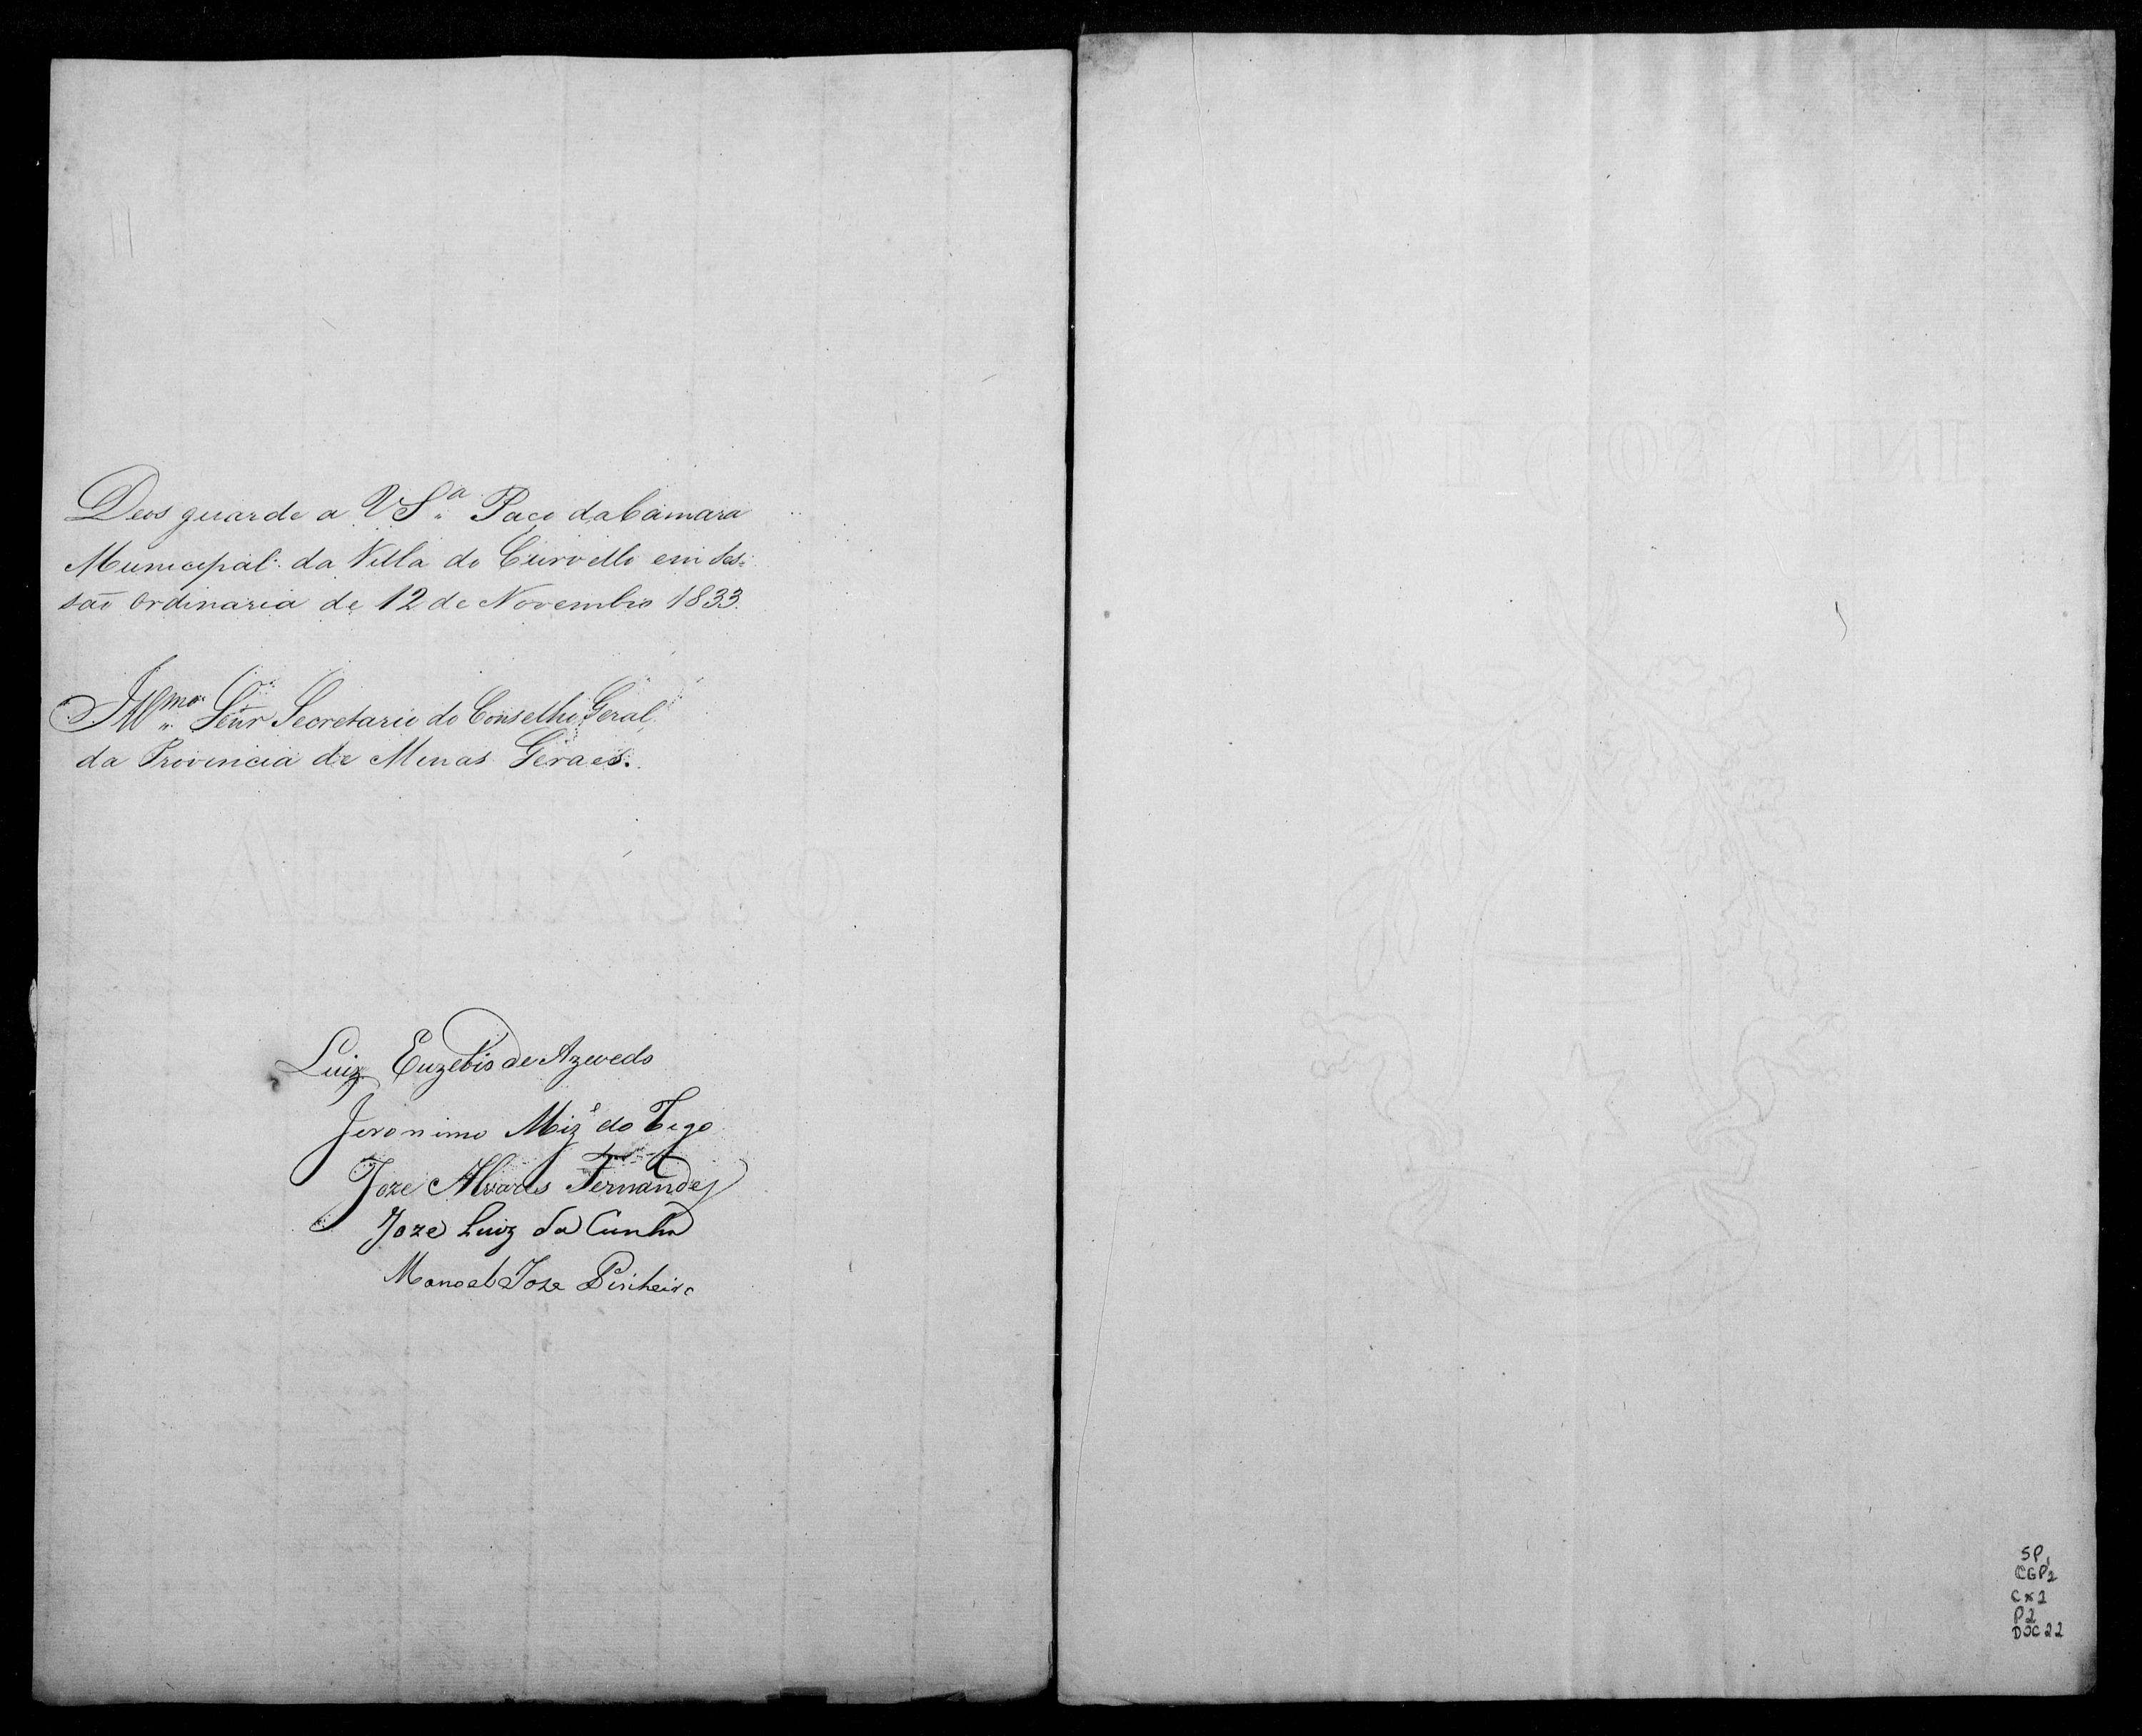 Deos guarde a VSª Paço da Camara
Municipal da Villa do Curvello em ses-
são Ordinaria de 12 de Novembro 1833.
Illmo Senr Secretario do Conselho Geral
da Provincia de Minas Geraes.
Luiz Euzebio de Azevedo
Jeronimo Miz do
Joze Alvares Fernandes
Joze Luiz da Cunha
Manoel Joze Pinheiro
SP
CGP2
Cx2
P2
DOC 22